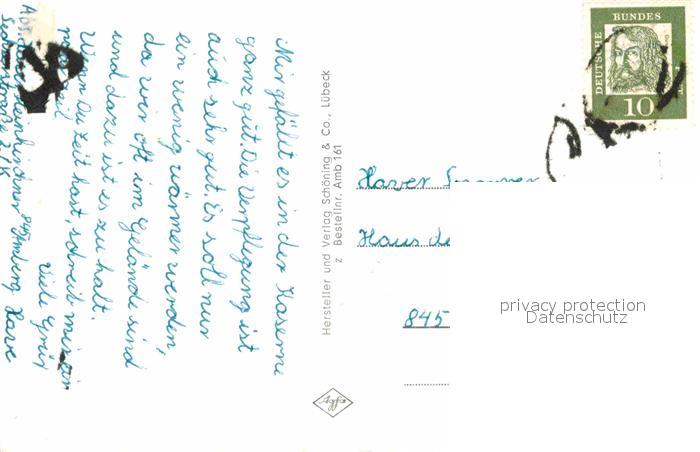 Mir gefällt es in der Kaserne
ganz gut. Die Verpflegung ist
auch sehr gut. Es soll nur
ein wenig wärmer werden,
da wir oft im Gelände sind
und dazu ist es zu kalt.
Wenn Du Zeit hast, schreib mir ein
mal
Viele Grüß
845 Amberg
Hersteller und Verlag Schöning & Co., Lübeck
z Bestellnr. Amb 161
Agfa
DEUTSCHE
BUNDES
10
Xaver
Haus de
845
privacy protection
Datenschutz